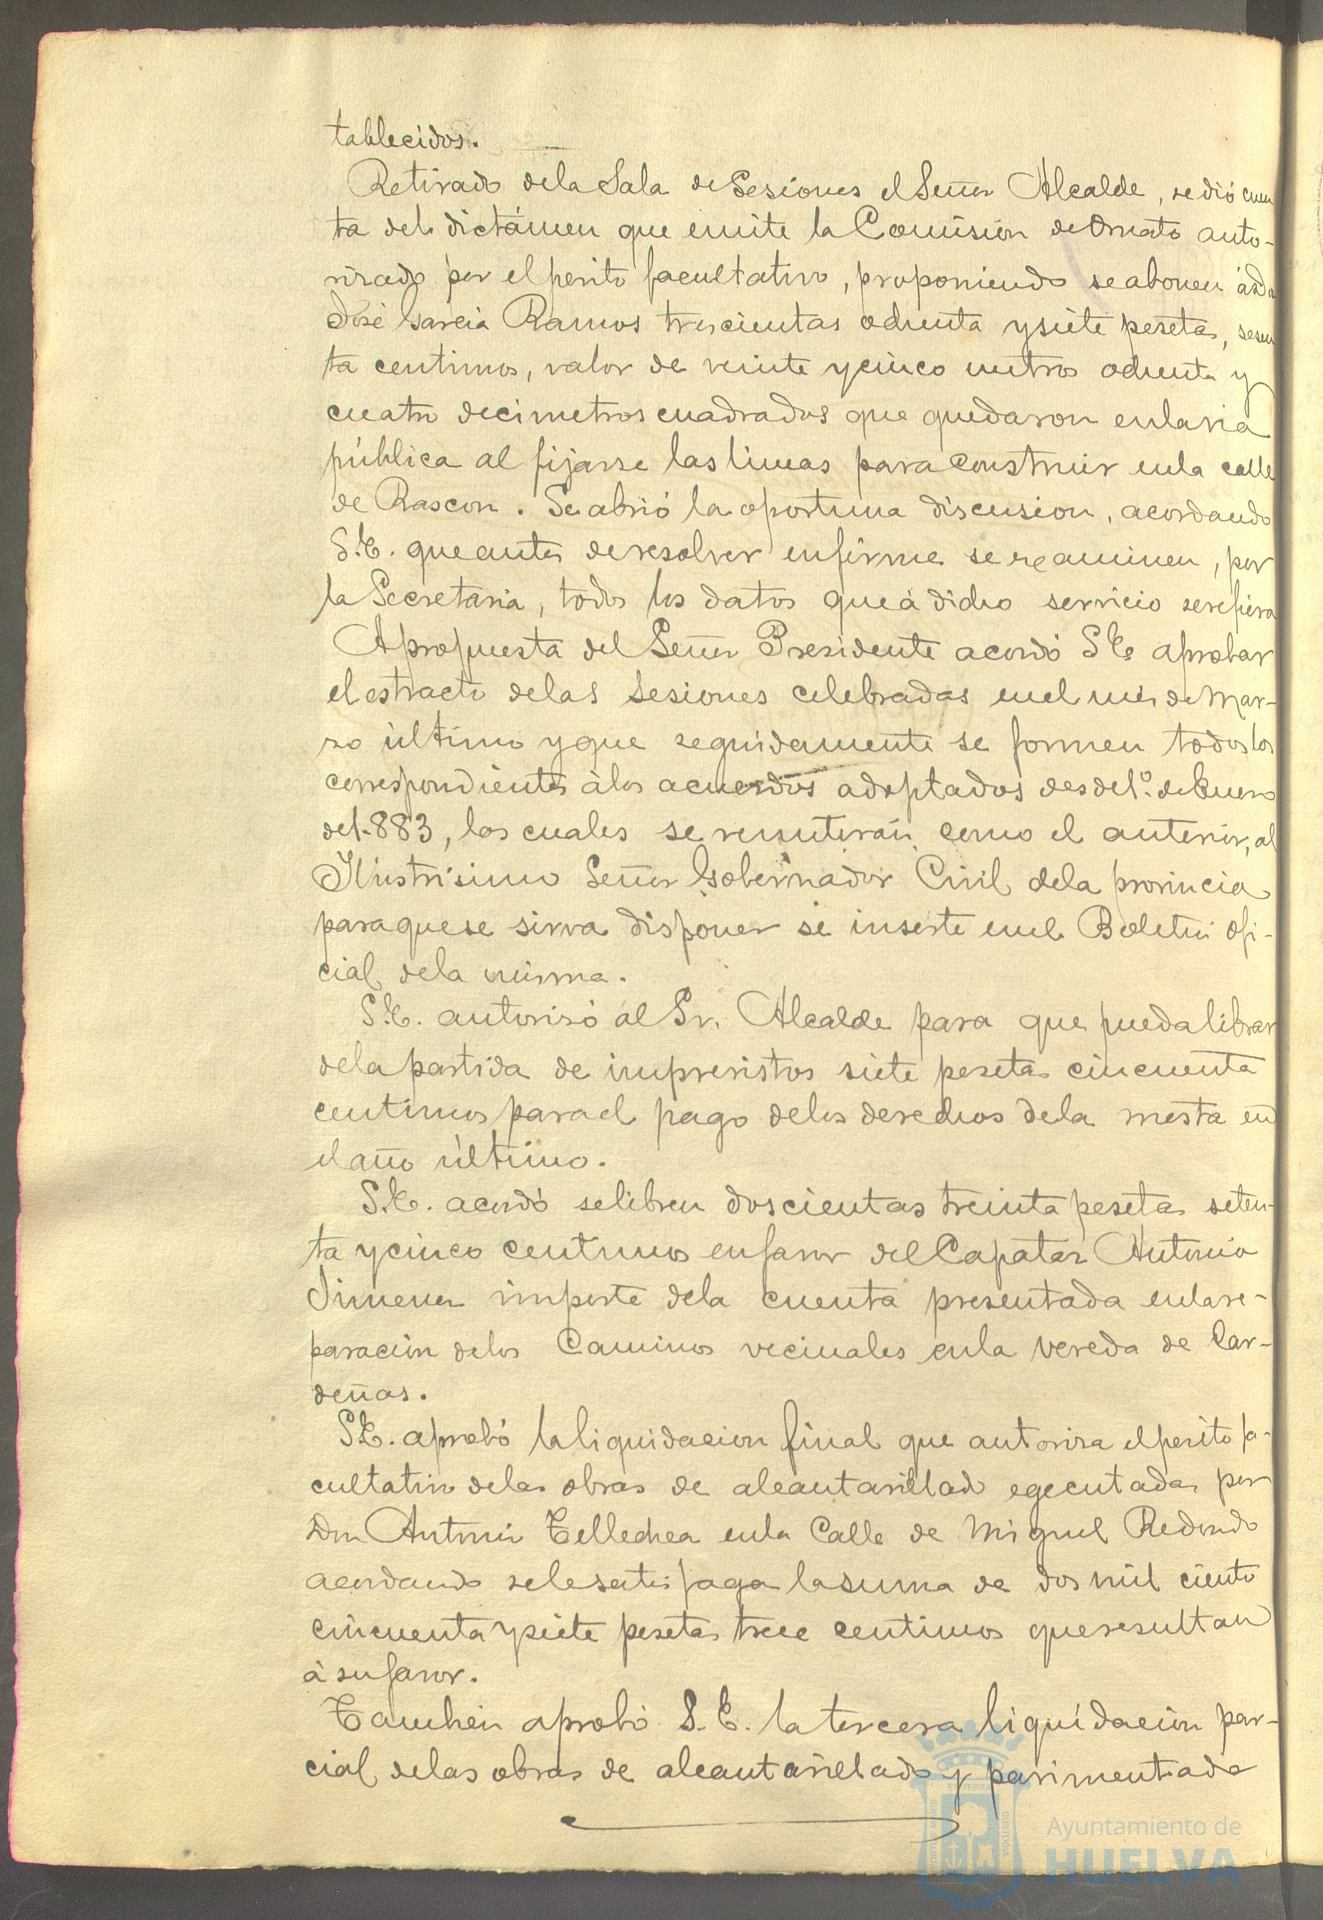 tablecidos.
Retirado de la Sala de Sesiones el Señor Alcalde, se dió cuen
ta del dictámen que emite la Comision de Ornato auto-
rizado por el perito facultativo, proponiendo se abonen á
José Garcia Ramos trescientas ochenta y siete pesetas, sesen
ta centimos, valor de veinte y cinco metros ochenta y
cuatro decimetros cuadrados que quedaron en la via
pública al fijarse las lineas para construir en la calle
de Rascon. Se abrió la oportuna discusion, acordando
S.E. que antes de resolver en firme se examinen, por
la Secretaria, todos los datos que á dicho servicio se refiera
A propuesta del Señor Presidente acordó S.E. aprobar
el estracto de las Sesiones celebradas en el mes de Mar-
zo último y que seguidamente se formen todos los
correspondientes á los acuerdos adoptados desde 1º. de Enero
de 1.883, los cuales se remitirán como el anterior, al
Ilustrisimo Señor Gobernador Civil de la provincia
para que se sirva disponer se inserte en el Boletin ofi-
cial de la misma.
S.E. autorizó al Sr. Alcalde para que pueda librar
de la partida de imprevistos siete pesetas cincuenta
centimos para el pago de los derechos de la mesta en
el año último.
S.E. acordó se libren doscientas treinta pesetas seten-
ta y cinco centimos en favor del Capataz Antonio
Jimenez importe de la cuenta presentada en la re-
paracion de los Caminos vecinales en la vereda de Car-
deñas.
S.E. aprobó la liquidacion final que autoriza el perito fa-
cultativo de las obras de alcantarillado egecutadas por
Don Antonio Tellechea en la Calle de Miguel Redondo
acordando se le satisfaga la suma de dos mil ciento
cincuenta y siete pesetas trece centimos que resultan
á su favor.
Tambien aprobó S.E. la tercera liquidacion par-
cial de las obras de alcantarillado y pavimentado
Ayuntamiento de
HUELVA